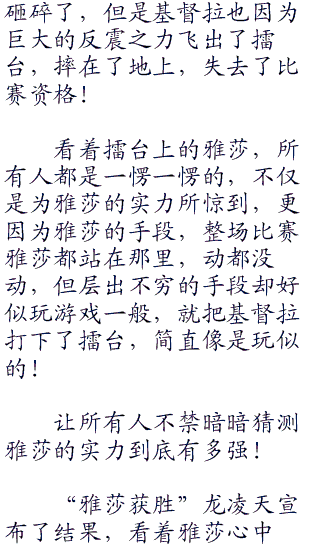 砸碎了，但是基督拉也因为
巨大的反震之力飞出了擂
台，摔在了地上，失去了比
赛资格！
看着擂台上的雅莎，所
有人都是一愣一愣的，不仅
是为雅莎的实力所惊到，更
因为雅莎的手段，整场比赛
雅莎都站在那里，动都没
动，但层出不穷的手段却好
似玩游戏一般，就把基督拉
打下了擂台，简直像是玩似
的！
让所有人不禁暗暗猜测
雅莎的实力到底有多强！
“雅莎获胜”龙凌天宣
布了结果，看着雅莎心中